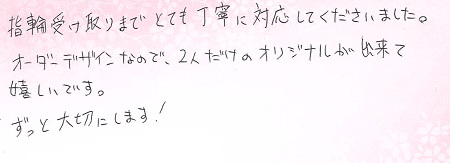 指輪受け取りまでとても丁寧に対応してくださいました。
オーダーデザインなので、2人だけのオリジナルが出来て
嬉しいです。
ずっと大切にします!